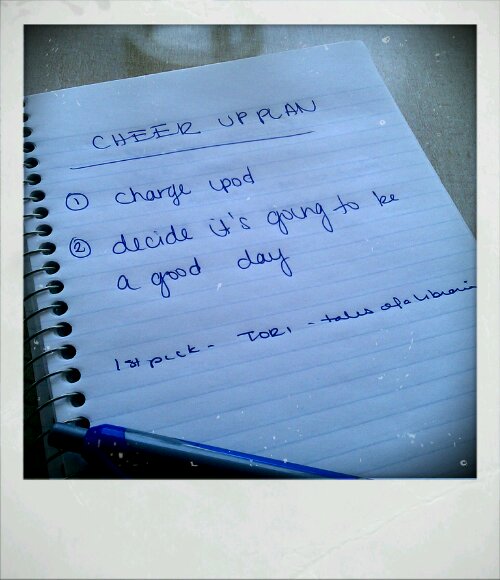 CHEER UP PLAN
① charge ipod
② decide it's going to be
a good day
1st pick - TORI - tales of a librarian